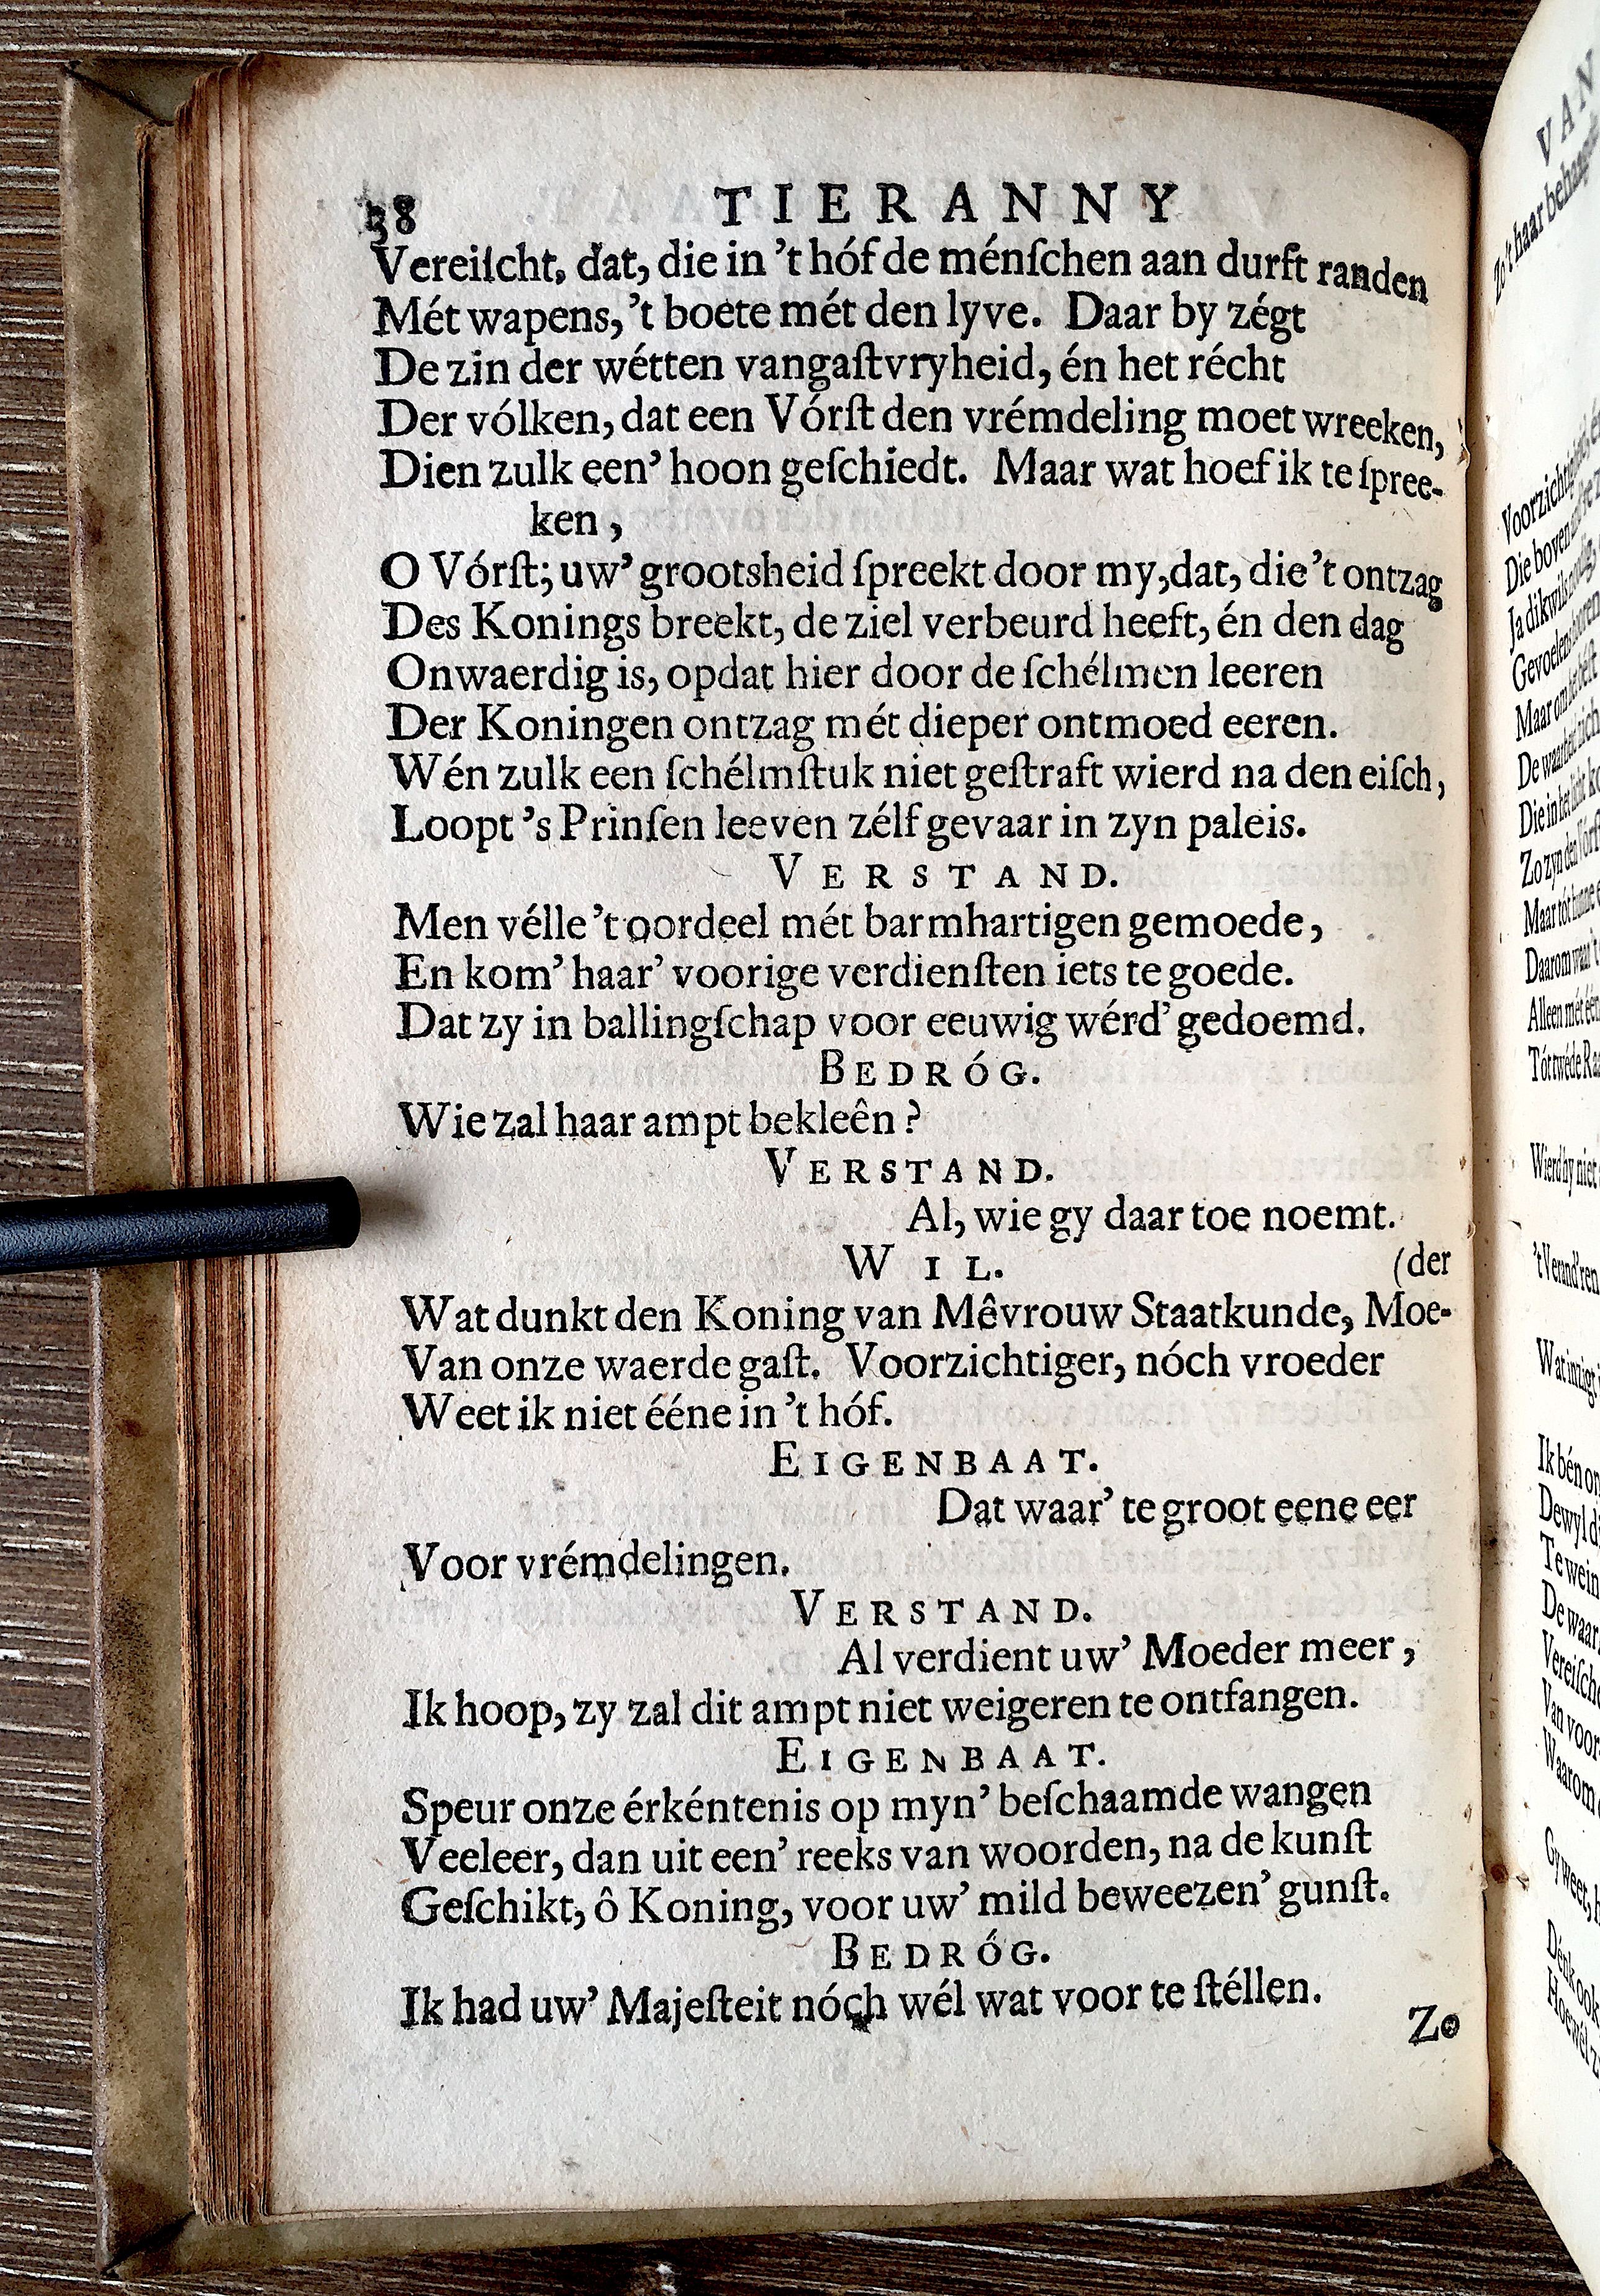 38 TIERANNY
Vereiſcht, dat, die in 't hóf de ménſchen aan durft randen
Mét wapens, 't boete mét den lyve. Daar by zégt
De zin der wétten vangaſtvryheid, én het récht
Der vólken, dat een Vórſt den vrémdeling moet wreeken,
Dien zulk een' hoon geſchiedt. Maar wat hoef ik te ſpree-
ken,
O Vórſt; uw' grootsheid ſpreekt door my, dat, die 't ontzag
Des Konings breekt, de ziel verbeurd heeft, én den dag
Onwaerdig is, opdat hier door de ſchélmen leeren
Der Koningen ontzag mét dieper ontmoed eeren.
Wén zulk een ſchélmſtuk niet geſtraft wierd na den eiſch,
Loopt 's Prinſen leeven zélf gevaar in zyn paleis.
VERSTAND.
Men vélle 't oordeel mét barmhartigen gemoede,
En kom' haar' voorige verdienſten iets te goede.
Dat zy in ballingſchap voor eeuwig wérd' gedoemd.
BEDRÓG.
Wie zal haar ampt bekleên?
VERSTAND.
Al, wie gy daar toe noemt.
WIL. (der
Wat dunkt den Koning van Mêvrouw Staatkunde, Moe-
Van onze waerde gaſt. Voorzichtiger, nóch vroeder
Weet ik niet ééne in 't hóf.
EIGENBAAT.
Dat waar' te groot eene eer
Voor vrémdelingen.
VERSTAND.
Al verdient uw' Moeder meer,
Ik hoop, zy zal dit ampt niet weigeren te ontfangen.
EIGENBAAT.
Speur onze érkéntenis op myn' beſchaamde wangen
Veeleer, dan uit een' reeks van woorden, na de kunſt
Geſchikt, ô Koning, voor uw' mild beweezen' gunſt.
BEDRÓG.
Ik had uw' Majeſteit nóch wél wat voor te ſtéllen.
Zo
VAN
Zo 't haar
Die boven
Gevoelen
Maar om
Die in het
Zo zyn den
Maar tót
Daarom waar
Alleen mét
Tót twéde
Wierd hy niet
't Verand'ren
Wat
Ik bén
Dewyl
Te
De
Van voor
Waarom
Gy weet,
Dénk ook
Hoewél